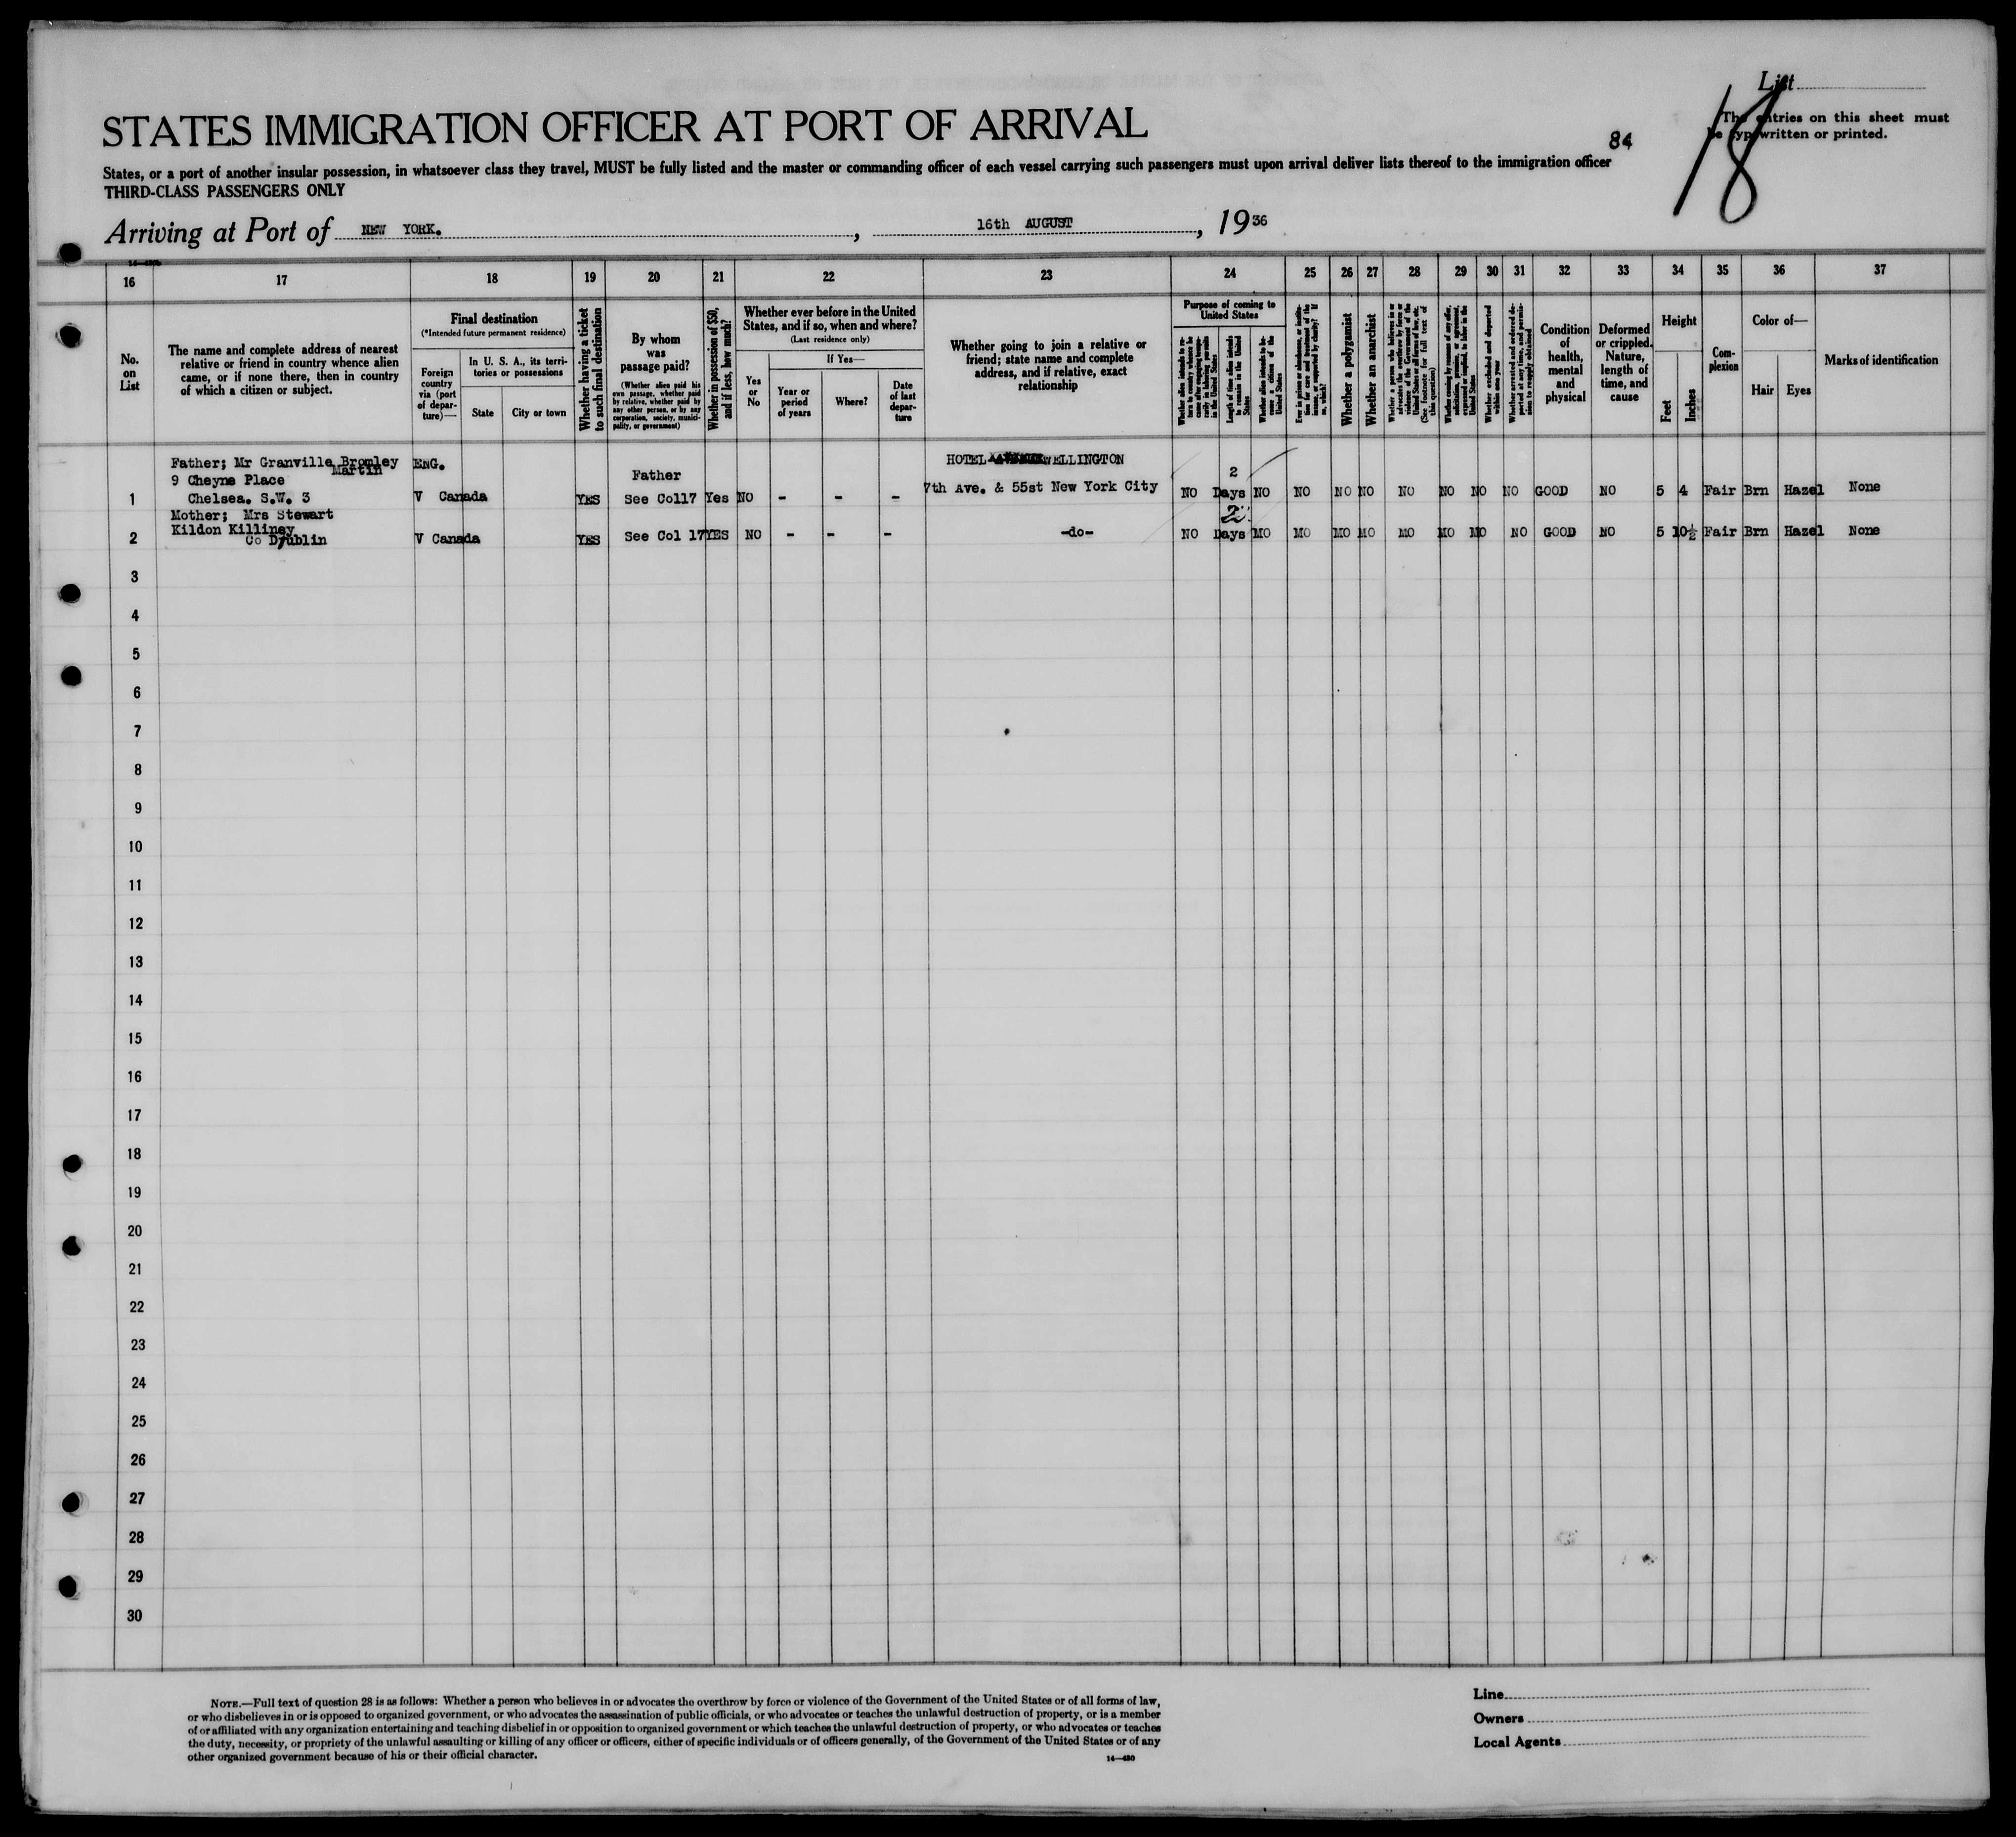 List
18
The entries on this sheet must
be typewritten or printed.
84
STATES IMMIGRATION OFFICER AT PORT OF ARRIVAL
States, or a port of another insular possession, in whatsoever class they travel, MUST be fully listed and the master or commanding officer of each vessel carrying such passengers must upon arrival deliver lists thereof to the immigration officer
THIRD-CLASS PASSENGERS ONLY
Arriving at Port of NEW YORK. , 16th AUGUST , 1936
16 17 18 19 20 21 22 23 24 25 26 27 28 29 30 31 32 33 34 35 36 37
No.
on
List
The name and complete address of nearest
relative or friend in country whence alien
came, or if none there, then in country
of which a citizen or subject.
Final destination
(*Intended future permanent residence)
Foreign
country
via (port
of depar-
ture)—
In U. S. A., its terri-
tories or possessions
State
City or town
Whether having a ticket
to such final destination
By whom
was
passage paid?
(Whether alien paid his
own passage, whether paid
by relative, whether paid by
any other person, or by any
corporation, society, munici-
pality, or government)
Whether in possession of $50,
and if less, how much?
Whether ever before in the United
States, and if so, when and where?
(Last residence only)
Yes
or
No
If Yes—
Year or
period
of years
Where?
Date
of last
depar-
ture
Whether going to join a relative or
friend; state name and complete
address, and if relative, exact
relationship
Purpose of coming to
United States
Length of time alien intends
to remain in the United
States
Whether alien intends to be-
come a citizen of the
United States
Whether a polygamist
Whether an anarchist
(See footnote for full text of
this question)
Whether excluded and deported
within one year
Condition
of
health,
mental
and
physical
Deformed
or crippled.
Nature,
length of
time, and
cause
Height
Feet
Inches
Com-
plexion
Color of—
Hair
Eyes
Marks of identification
Father; Mr Granville Bromley ENG. HOTEL WELLINGTON
Martin
9 Cheyne Place Father 2
1 Chelsea. S.W. 3 V Canada YES See Col17 Yes NO - - - 7th Ave. & 55st New York City NO Days NO NO NO NO NO NO NO NO GOOD NO 5 4 Fair Brn Hazel None
Mother; Mrs Stewart 2
Kildon Killiney
2 Co Dublin V Canada YES See Col 17 YES NO - - - -do- NO Days NO NO NO NO NO NO NO NO GOOD NO 5 10½ Fair Brn Hazel None
3
4
5
6
7
8
9
10
11
12
13
14
15
16
17
18
19
20
21
22
23
24
25
26
27
28
29
30
NOTE.—Full text of question 28 is as follows: Whether a person who believes in or advocates the overthrow by force or violence of the Government of the United States or of all forms of law,
or who disbelieves in or is opposed to organized government, or who advocates the assassination of public officials, or who advocates or teaches the unlawful destruction of property, or is a member
of or affiliated with any organization entertaining and teaching disbelief in or opposition to organized government or which teaches the unlawful destruction of property, or who advocates or teaches
the duty, necessity, or propriety of the unlawful assaulting or killing of any officer or officers, either of specific individuals or of officers generally, of the Government of the United States or of any
other organized government because of his or their official character.
14—430
Line
Owners
Local Agents